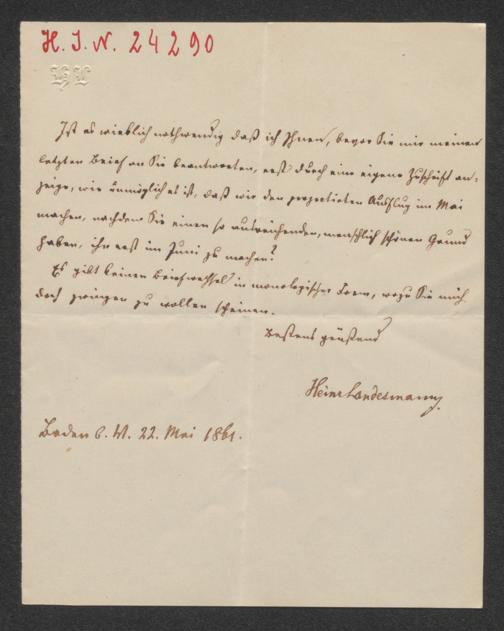 H. I. N. 24290
HL
Ist es wirklich nothwendig daß ich Ihnen, bevor Sie mir meinen
letzten Brief an Sie beantworten, erst durch eine eigene Zuschrift an-
zeige, wie unmöglich es ist, daß wir den projectirten Ausflug im Mai
machen, nachdem Sie einen so ausreichenden, menschlich schönen Grund
haben, ihn erst im Juni zu machen?
Es gibt keinen Briefwechsel in monologischer Form, wozu Sie mich
doch zwingen zu wollen scheinen.
Bestens grüßend
Heinr Landesmann.
Baden b. W. 22. Mai 1861.